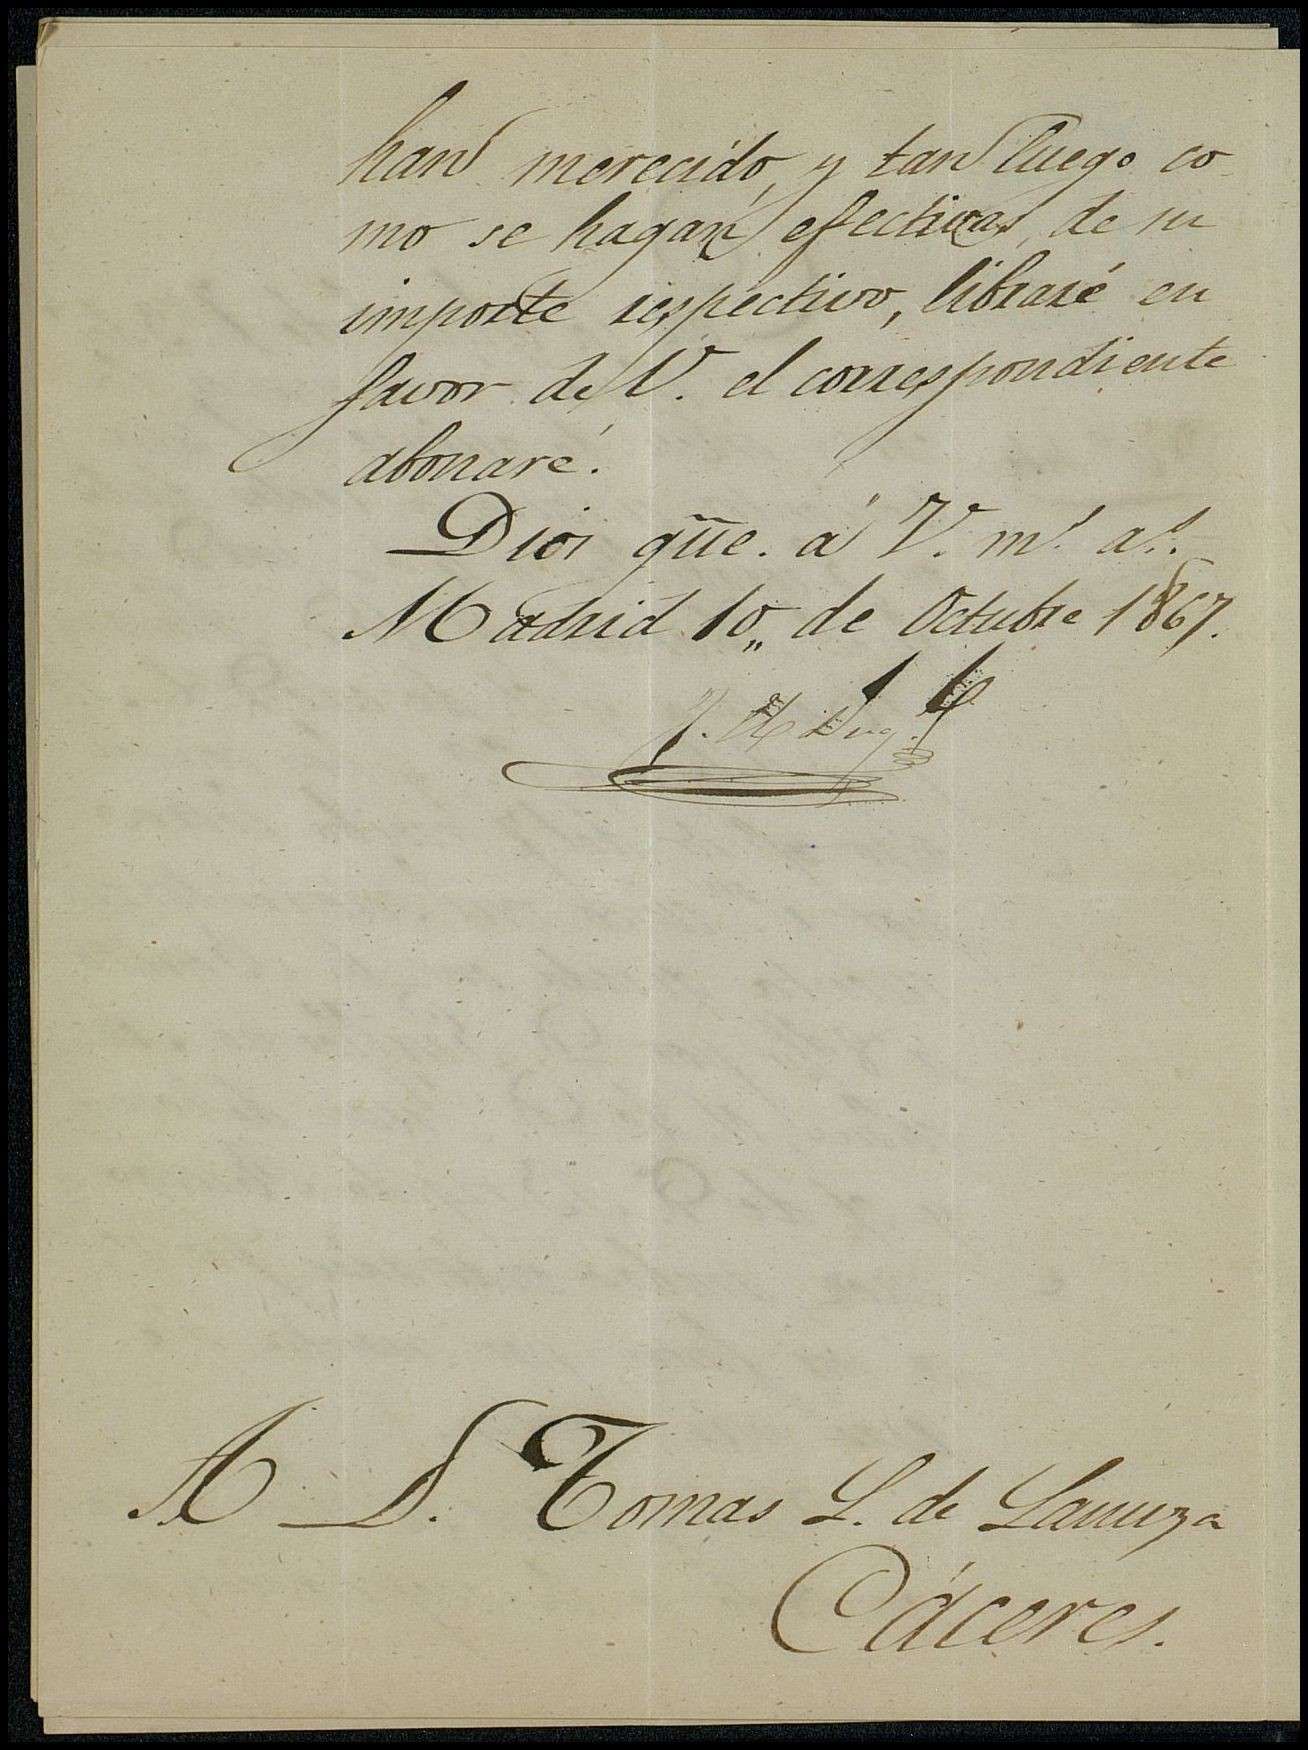 han merecido, y tan luego co-
mo se hagan efectivas, de su
importe respectivo, libraré en
favor de V. el correspondiente
abonaré.
Dios güe. á V. ms. as.
Madrid 10,, de Octubre 1867.
A D. Tomas L. de Lanuza
Cáceres.